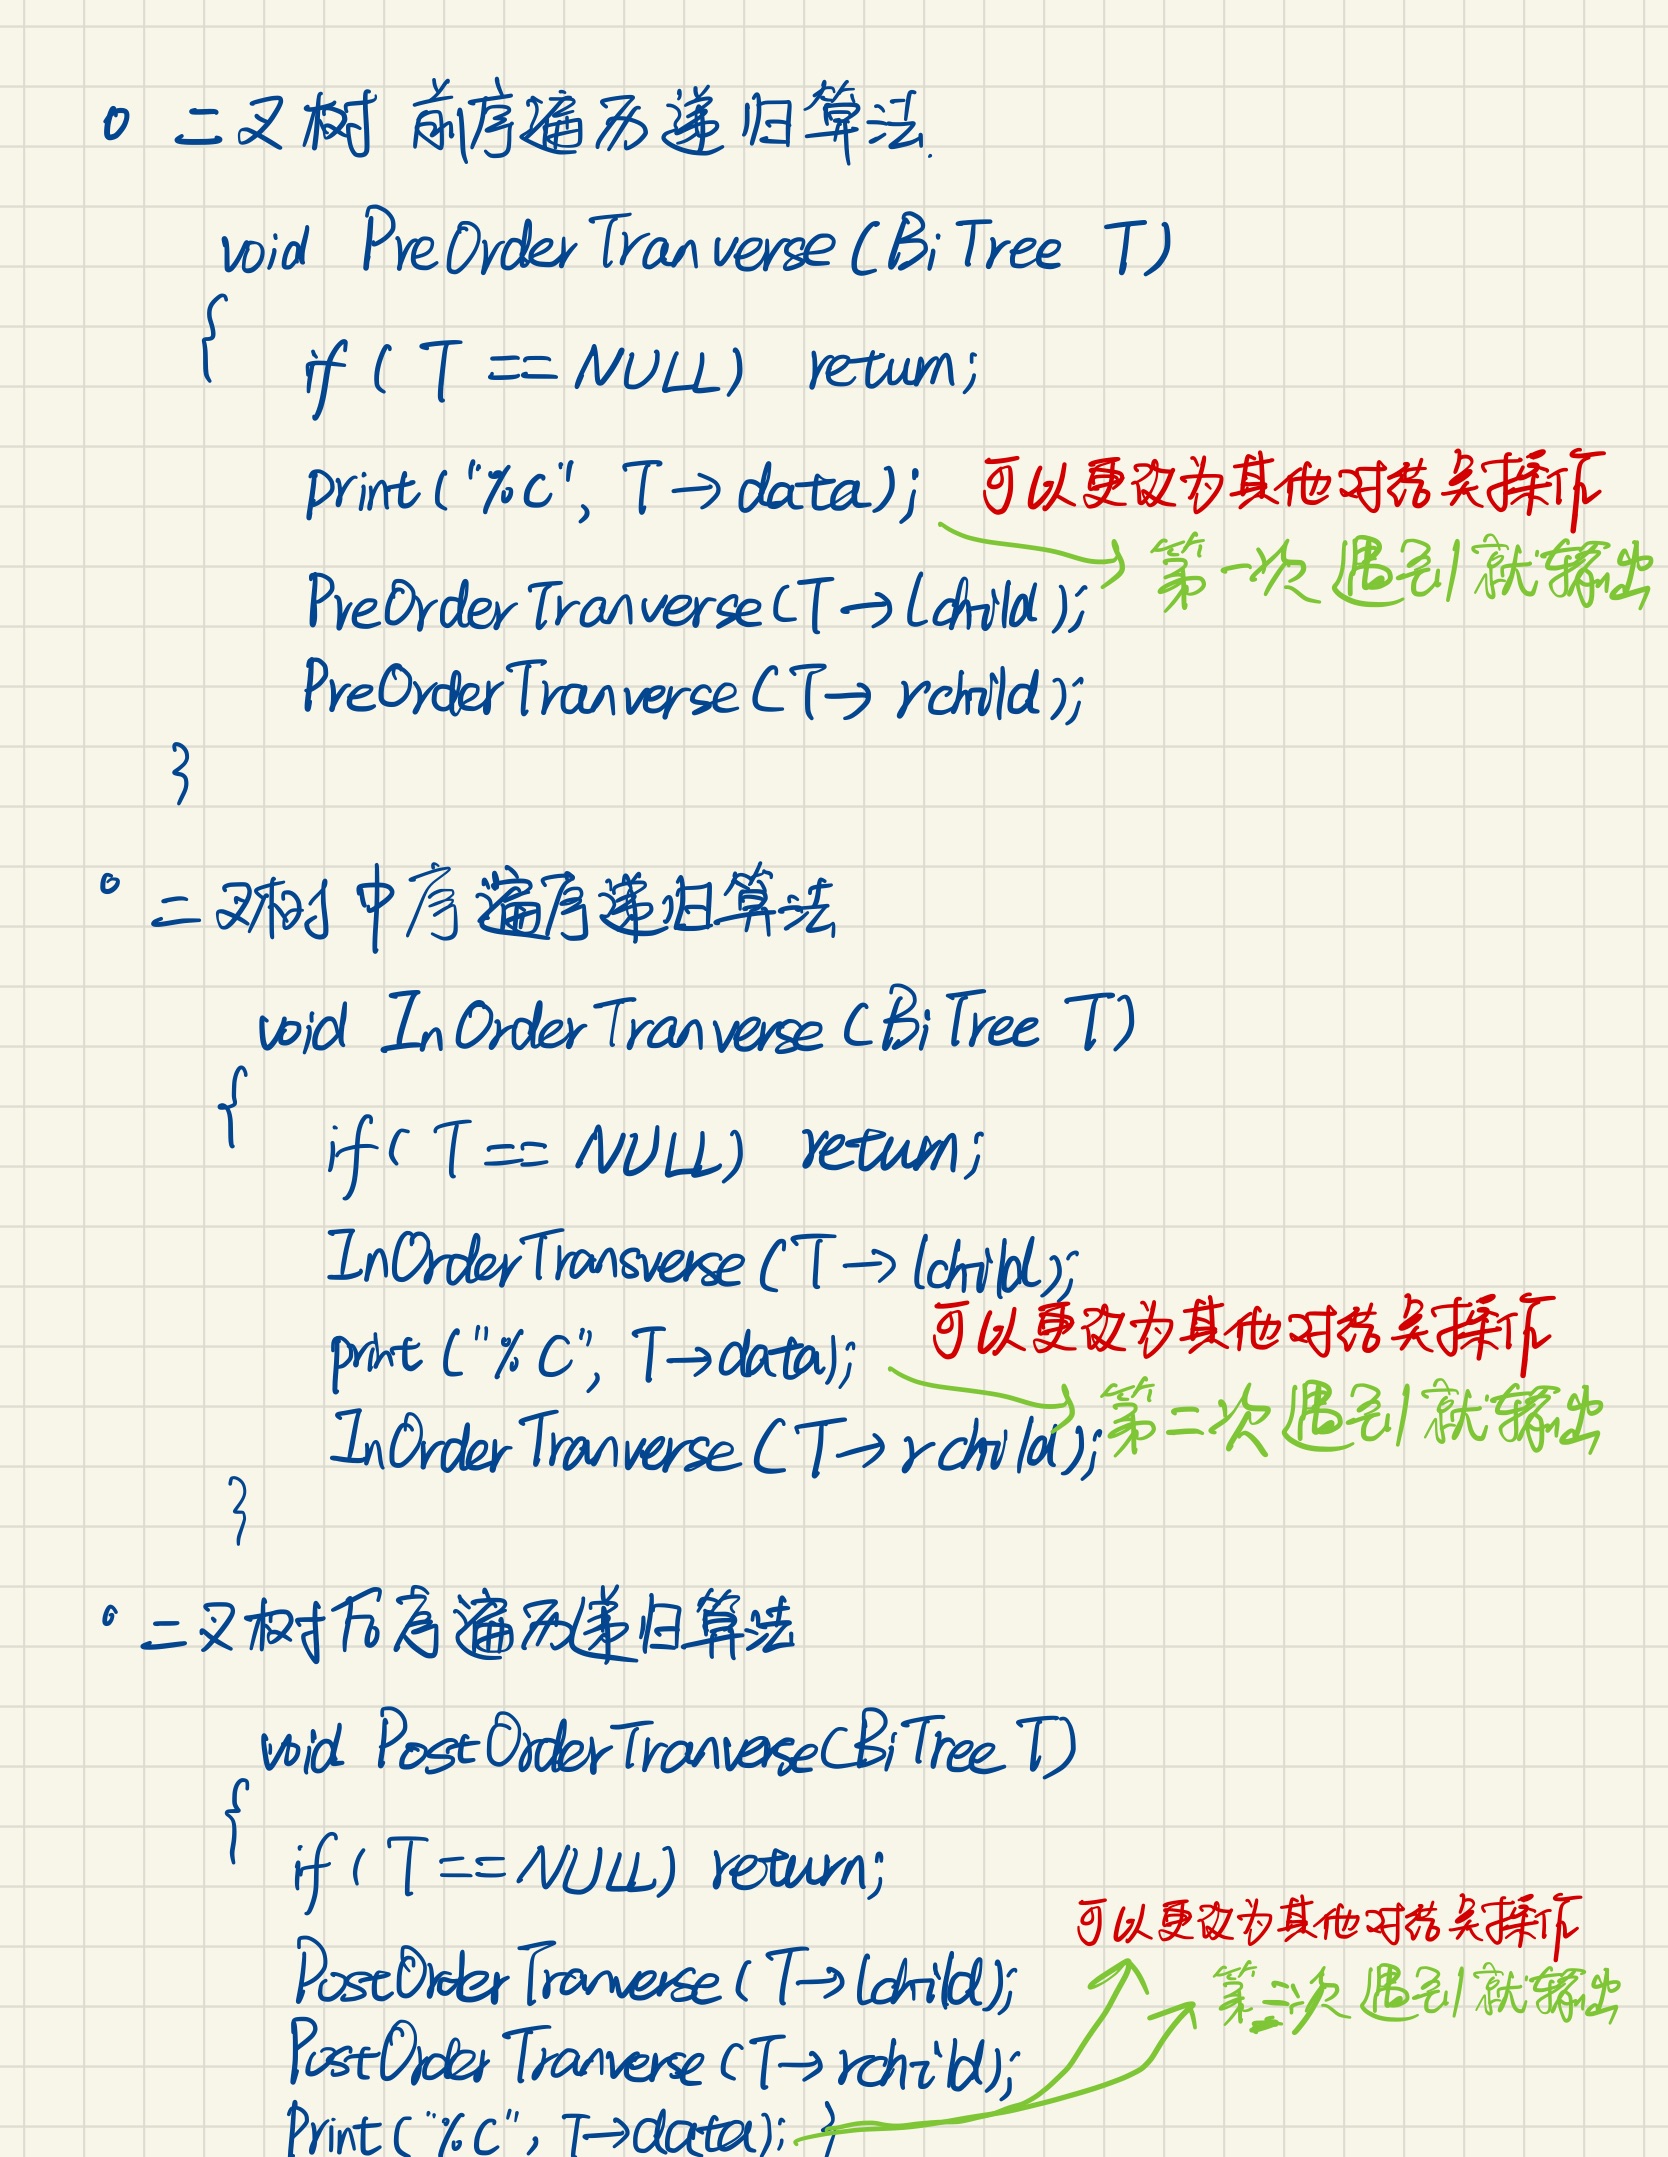 二叉树前序遍历递归算法.
void PreOrderTranverse(BiTree T)
{
if ( T == NULL) return;
print("%c", T→data); 可以更改为其他对结点操作
第一次遇到就输出
PreOrderTranverse(T→lchild);
PreOrderTranverse(T→rchild);
}
二叉树中序遍序递归算法
void InOrderTranverse(BiTree T)
{
if( T == NULL) return;
InOrderTransverse(T→lchild);
可以更改为其他对结点操作
print("%C", T→data);
第二次遇到就输出
InOrderTranverse(T→rchild);
}
二叉树后序遍历递归算法
void PostOrderTranverse(BiTree T)
{
if( T == NULL) return;
可以更改为其他对结点操作
PostOrderTranverse(T→lchild);
第三次遇到就输出
PostOrderTranverse(T→rchild);
Print("%C", T→data); }